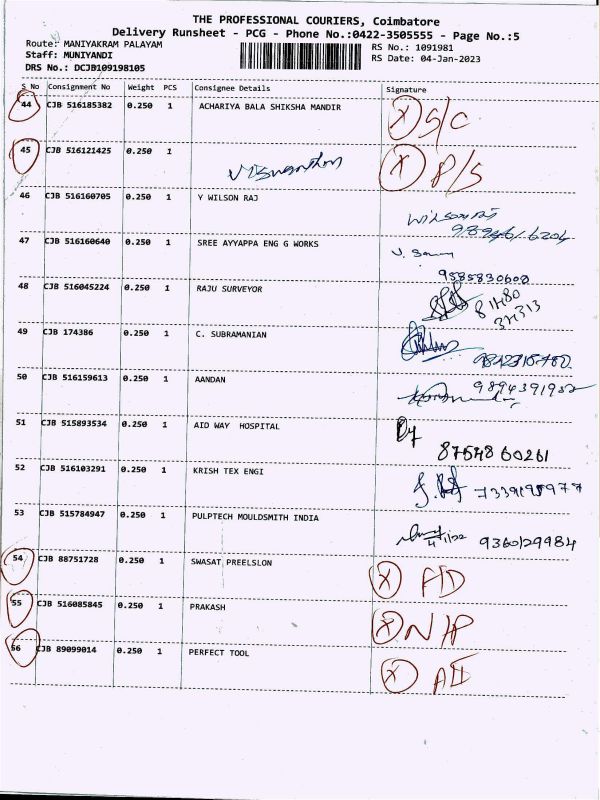 THE PROFESSIONAL COURIERS, Coimbatore
Delivery Runsheet - PCG - Phone No.:0422-3505555 - Page No.:5
Route: MANIYAKRAM PALAYAM
RS No.: 1091981
Staff: MUNIYANDI
RS Date: 04-Jan-2023
DRS No.: DCJB109198105
S No Consignment No Weight PCS Consignee Details Signature
44 CJB 516185382 0.250 1 ACHARIYA BALA SHIKSHA MANDIR X S/C
45 CJB 516121425 0.250 1 X P/S
46 CJB 516160705 0.250 1 Y WILSON RAJ
47 CJB 516160640 0.250 1 SREE AYYAPPA ENG G WORKS
9585830608
48 CJB 516045224 0.250 1 RAJU SURVEYOR
49 CJB 174386 0.250 1 C. SUBRAMANIAN
50 CJB 516159613 0.250 1 AANDAN 9894391932
51 CJB 515893534 0.250 1 AID WAY HOSPITAL
87548 60261
52 CJB 516103291 0.250 1 KRISH TEX ENGI
53 CJB 515784947 0.250 1 PULPTECH MOULDSMITH INDIA 9360129984
54 CJB 88751728 0.250 1 SWASAT PREELSLON X
55 CJB 516085845 0.250 1 PRAKASH X N/P
56 CJB 89099014 0.250 1 PERFECT TOOL X